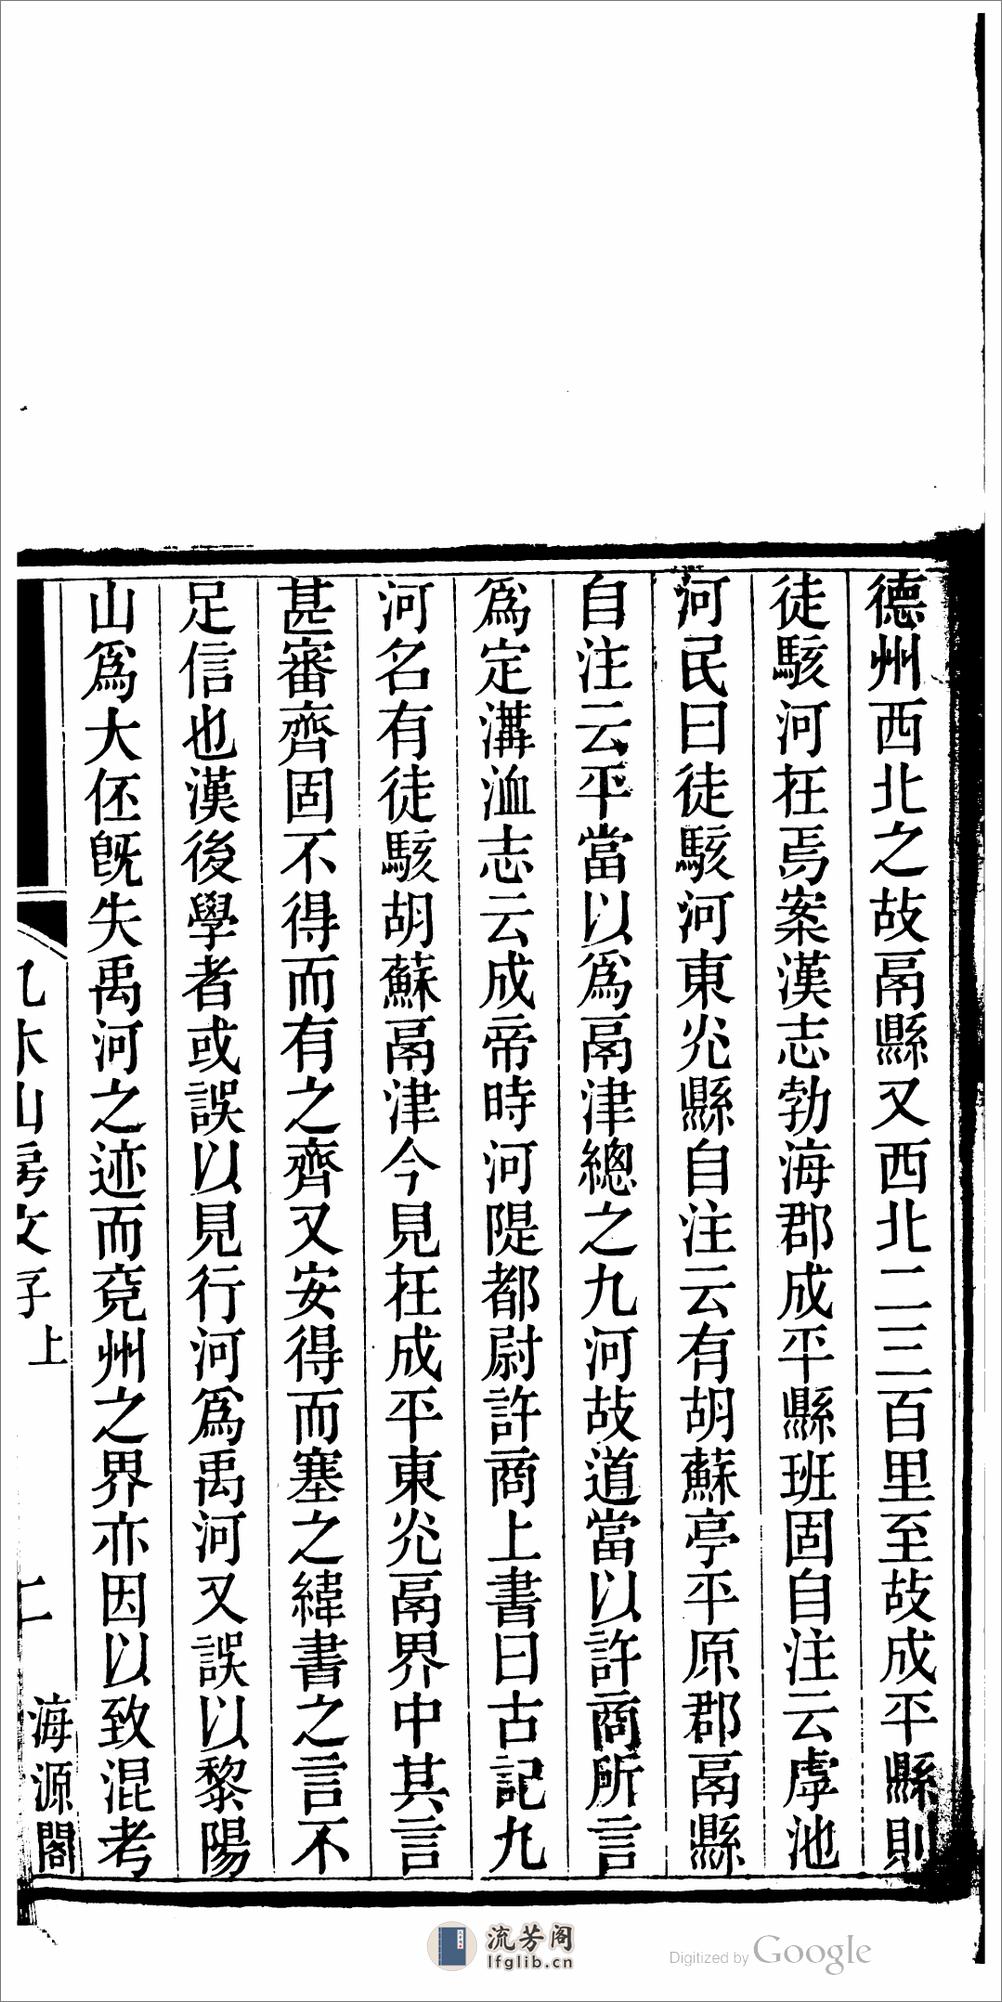 德州西北之故鬲縣又西北二三百里至故成平縣則
徒駭河在焉案漢志勃海郡成平縣班固自注云虖池
河民曰徒駭河東光縣自注云有胡蘇亭平原郡鬲縣
自注云平當以爲鬲津總之九河故道當以許商所言
爲定溝洫志云成帝時河隄都尉許商上書曰古記九
河名有徒駭胡蘇鬲津今見在成平東光鬲界中其言
甚審齊固不得而有之齊又安得而塞之緯書之言不
足信也漢後學者或誤以見行河爲禹河又誤以黎陽
山爲大伾旣失禹河之迹而兗州之界亦因以致混考
山房文存上
海源閣
流芳阁
lfglib.cn
Digitized by Google